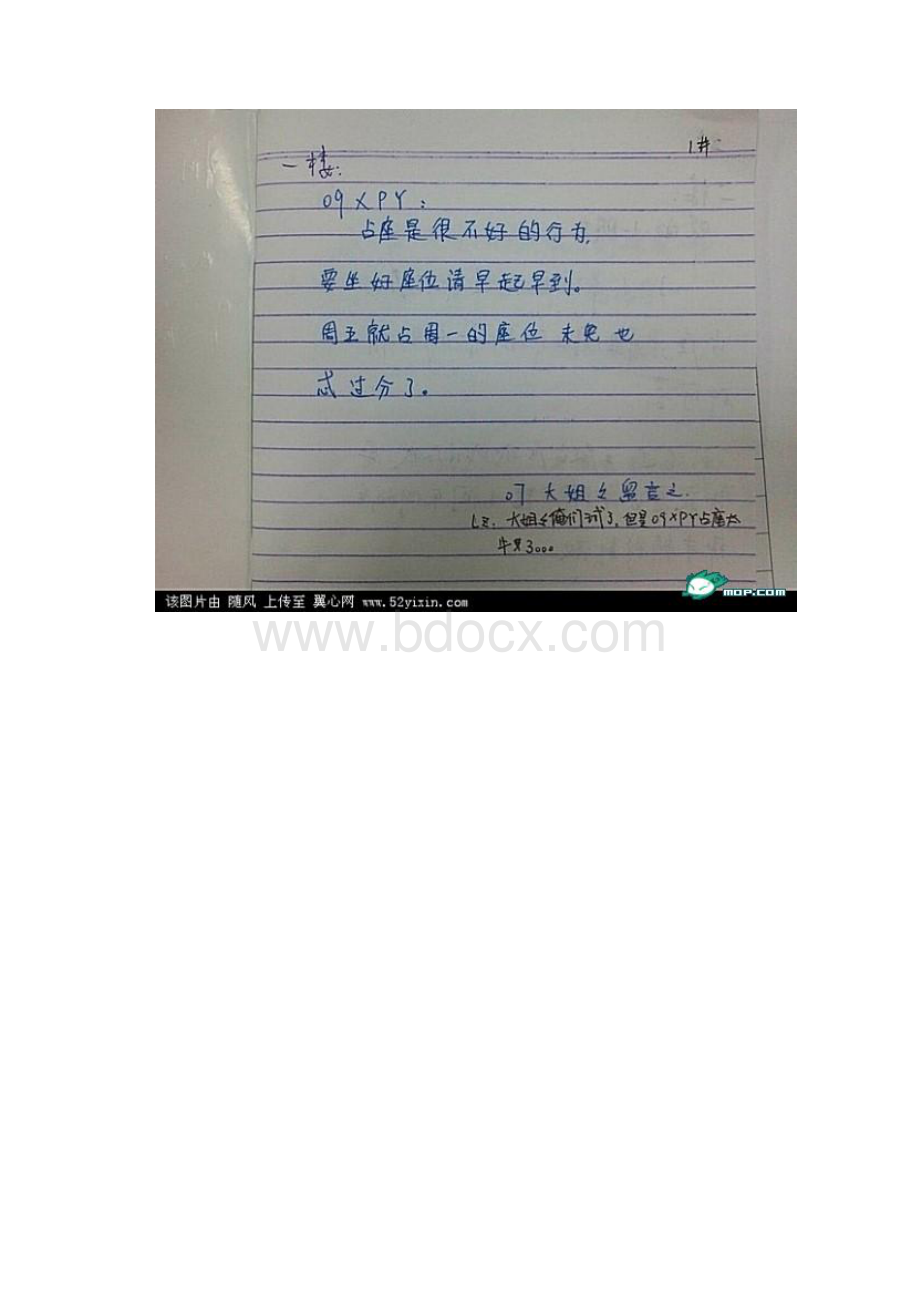 1#
一楼:
09XPY:
占座是很不好的行为,
要坐好座位请早起早到。
周五就占周一的座位 未免也
忒过分了。
07 大姐 留言之.
LZ, 大姐 俺们 了, 但是09XPY占座太
牛叉了。。。
该图片由 随风 上传至 翼心网 www.52yixin.com
MOP.COM
www.bdocx.com